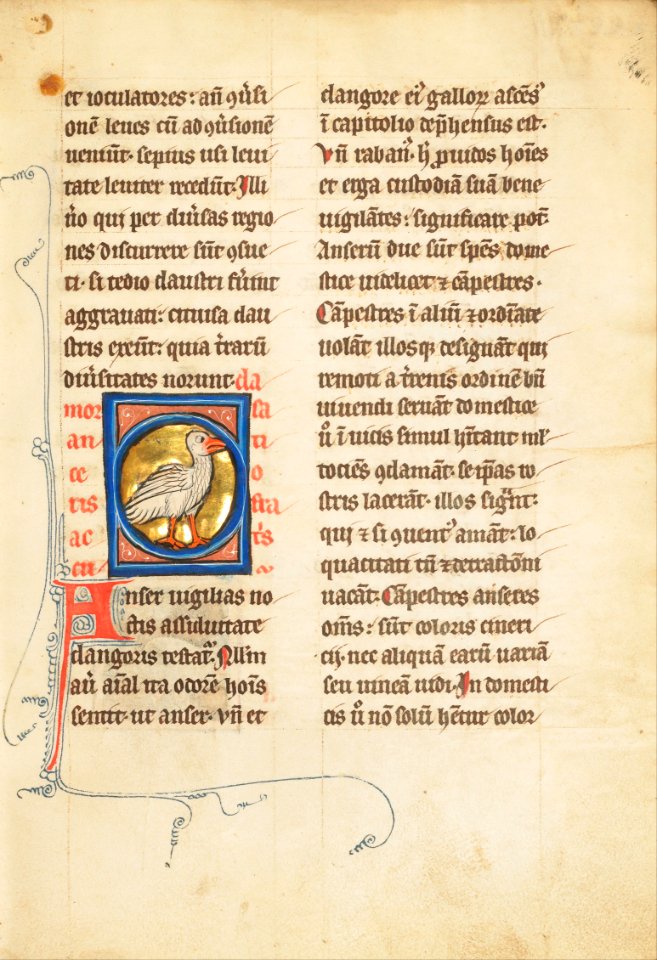 et ioculatores: añ ꝯv̾si
onē leues cū ad ꝯv̾sionē
ueniūt· sepius usi leui
tate leuiter recedūt· Illi
v̾o qui per diu̾sas regio
nes discurrere sūt ꝯsue
ti· si tedio claustri fu̾int
aggrauati: cituisa clau
stris exeūt: quia t̾rarū
diu̾sitates norunt· cla
mor sa
an ti
ce o
ris stra
ac t̾s
cu
Anser uigilias no
ctis assiduitate
clangoris testat᷑· Nllm
au̾ aīal ita odorē hoīs
sentit· ut anser· vn̄ et
clangore ei᷒ galloꝝ ascēs᷒
ī capitolio dep̄hensus est·
Vn̄ raban᷒· h̾ ꝓuidos hoīes
et erga custodiā suā bene
uigilātes: significare pōt·
Anserū due sūt sp̄es dome
stice uidelicet ⁊ cāpestres·
Cāpestres ī altū ⁊ ordīate
uolāt illosqꝫ designāt qui
remoti a t̾renis ordinē bn̄
uiuendi seruāt domestice
u̾o ī uicis simul hītant ml᷒
tociēs ꝯclamāt· se ip̄as ro
stris lacerāt· illos sign̾t:
qui ⁊ si ꝯuent᷒ amāt: lo
quacitati tn̄ ⁊ detractōni
uacāt· Cāpestres anseres
om̄s: sūt coloris cineri
cij· nec aliquā earū uariā
seu uineā uidi· In domesti
cis u̾o nō solū hētur color